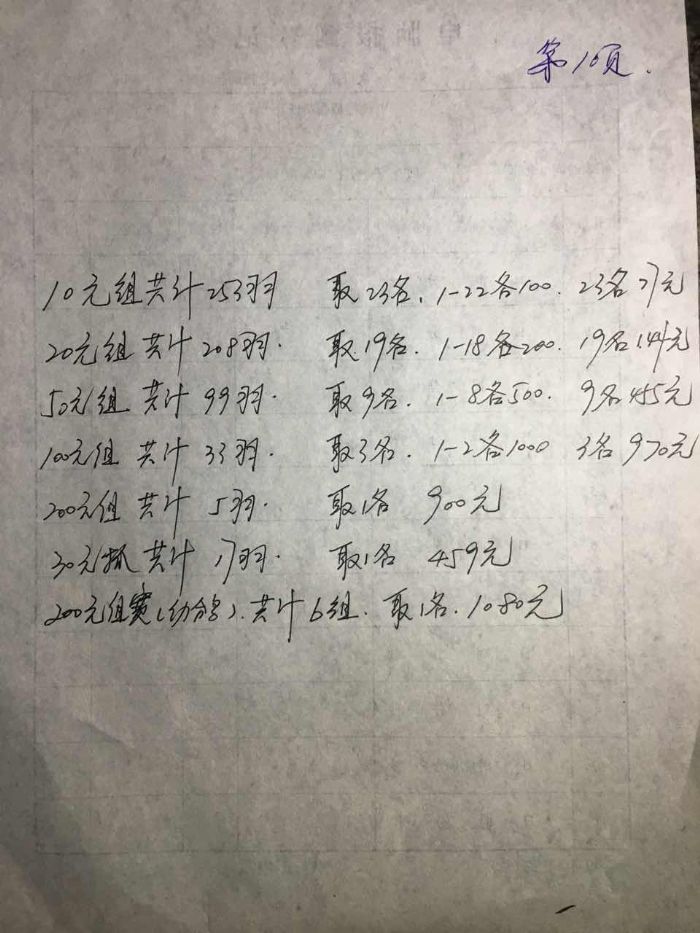 第10页.
10元组共计253羽 取23名. 1-22各100. 23名77元
20元组共计208羽. 取19名. 1-18各200. 19名144元
50元组共计99羽. 取9名. 1-8各500. 9名455元
100元组共计33羽. 取3名. 1-2各1000 3名970元
200元组共计5羽. 取1名 900元
30元抓共计17羽. 取1名 459元
200元组赛(幼鸽).共计6组. 取1名.1080元